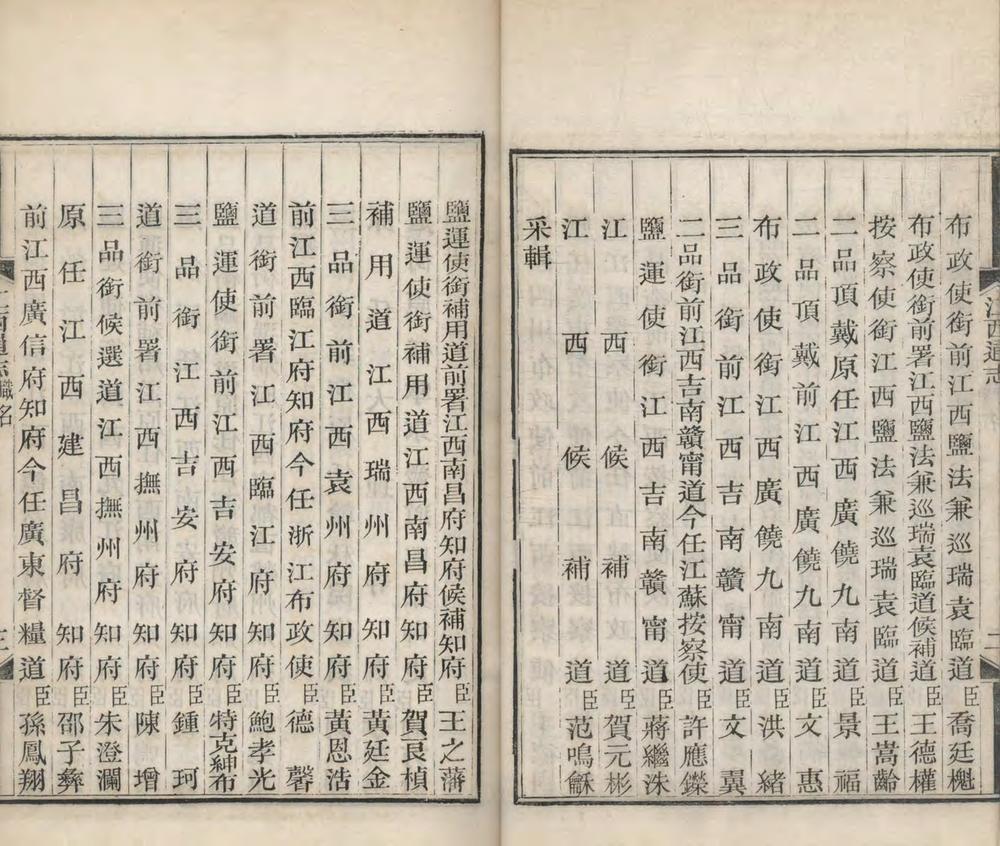 江西通志
二
布政使銜前江西鹽法兼巡瑞袁臨道臣喬廷櫆
布政使銜前署江西鹽法兼巡瑞袁臨道候補道臣王德權
按察使銜江西鹽法兼巡瑞袁臨道臣王嵩齡
二品頂戴原任江西廣饒九南道臣景福
二品頂戴前江西廣饒九南道臣文惠
布政使銜江西廣饒九南道臣洪緒
三品銜前江西吉南贛甯道臣文翼
二品銜前江西吉南贛甯道今任江蘇按察使臣許應鑅
鹽運使銜江西吉南贛甯道臣蔣繼洙
江西候補道臣賀元彬
江西候補道臣范鳴龢
采輯
鹽運使銜補用道前署江西南昌府知府候補知府臣王之藩
鹽運使銜補用道江西南昌府知府臣賀良楨
補用道江西瑞州府知府臣黃廷金
三品銜前江西袁州府知府臣黃恩浩
前江西臨江府知府今任浙江布政使臣德馨
道銜前署江西臨江府知府臣鮑孝光
鹽運使銜前江西吉安府知府臣特克紳布
三品銜江西吉安府知府臣鍾珂
道銜前署江西撫州府知府臣陳增
三品銜候選道江西撫州府知府臣朱澄瀾
原任江西建昌府知府臣邵子彝
前江西廣信府知府今任廣東督糧道臣孫鳳翔
江西通志職名
三